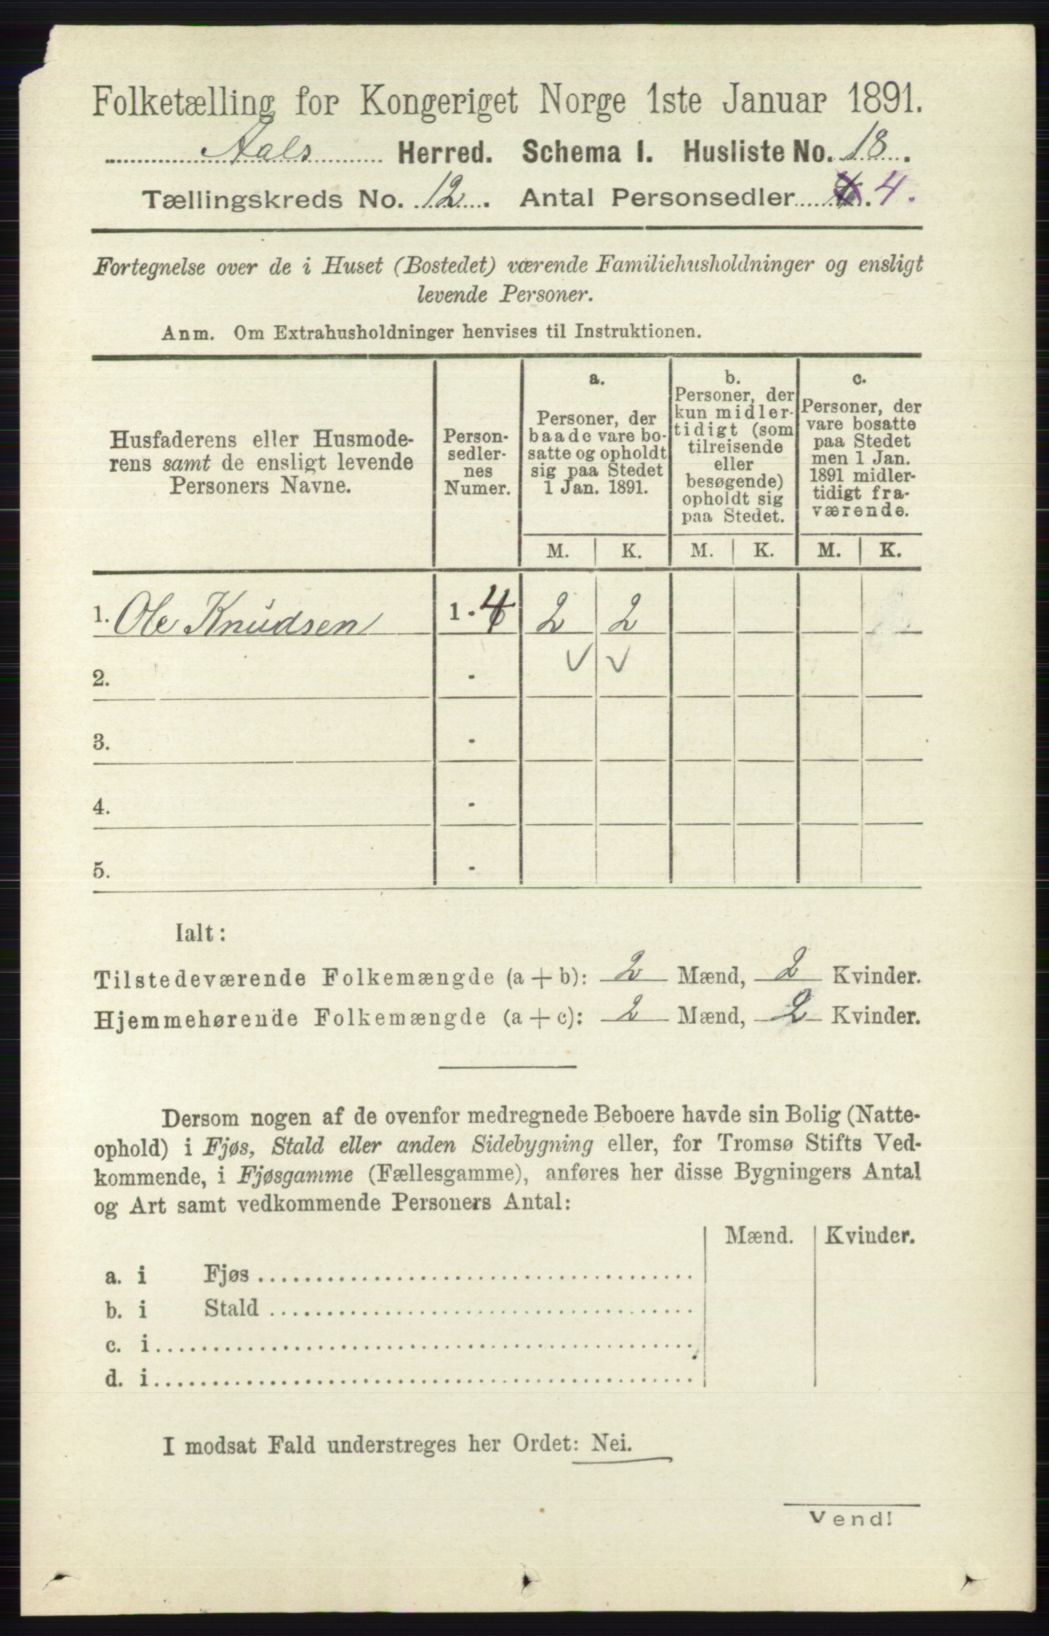 Folketælling for Kongeriget Norge 1ste Januar 1891.
Aals Herred. Schema I. Husliste No. 18.
Tællingskreds No. 12. Antal Personsedler 4.
Fortegnelse over de i Huset (Bostedet) værende Familiehusholdninger og ensligt
levende Personer.
Anm. Om Extrahusholdninger henvises til Instruktionen.
Husfaderens eller Husmode-
rens samt de ensligt levende
Personers Navne.
Person-
sedler-
nes
Numer.
a.
Personer, der
baade vare bo-
satte og opholdt
sig paa Stedet
1 Jan. 1891.
b.
Personer, der
kun midler-
tidigt (som
tilreisende
eller
besøgende)
opholdt sig
paa Stedet.
c.
Personer, der
vare bosatte
paa Stedet
men 1 Jan.
1891 midler-
tidigt fra-
værende.
M. K. M. K. M. K.
1. Ole Knudsen 1 - 4 2 2
2. - ✓ ✓
3. -
4. -
5. -
Ialt:
Tilstedeværende Folkemængde (a + b): 2 Mænd, 2 Kvinder.
Hjemmehørende Folkemængde (a + c): 2 Mænd, 2 Kvinder.
Dersom nogen af de ovenfor medregnede Beboere havde sin Bolig (Natte-
ophold) i Fjøs, Stald eller anden Sidebygning eller, for Tromsø Stifts Ved-
kommende, i Fjøsgamme (Fællesgamme), anføres her disse Bygningers Antal
og Art samt vedkommende Personers Antal:
Mænd. Kvinder.
a. i Fjøs
b. i Stald
c. i
d. i
I modsat Fald understreges her Ordet: Nei.
Vend!